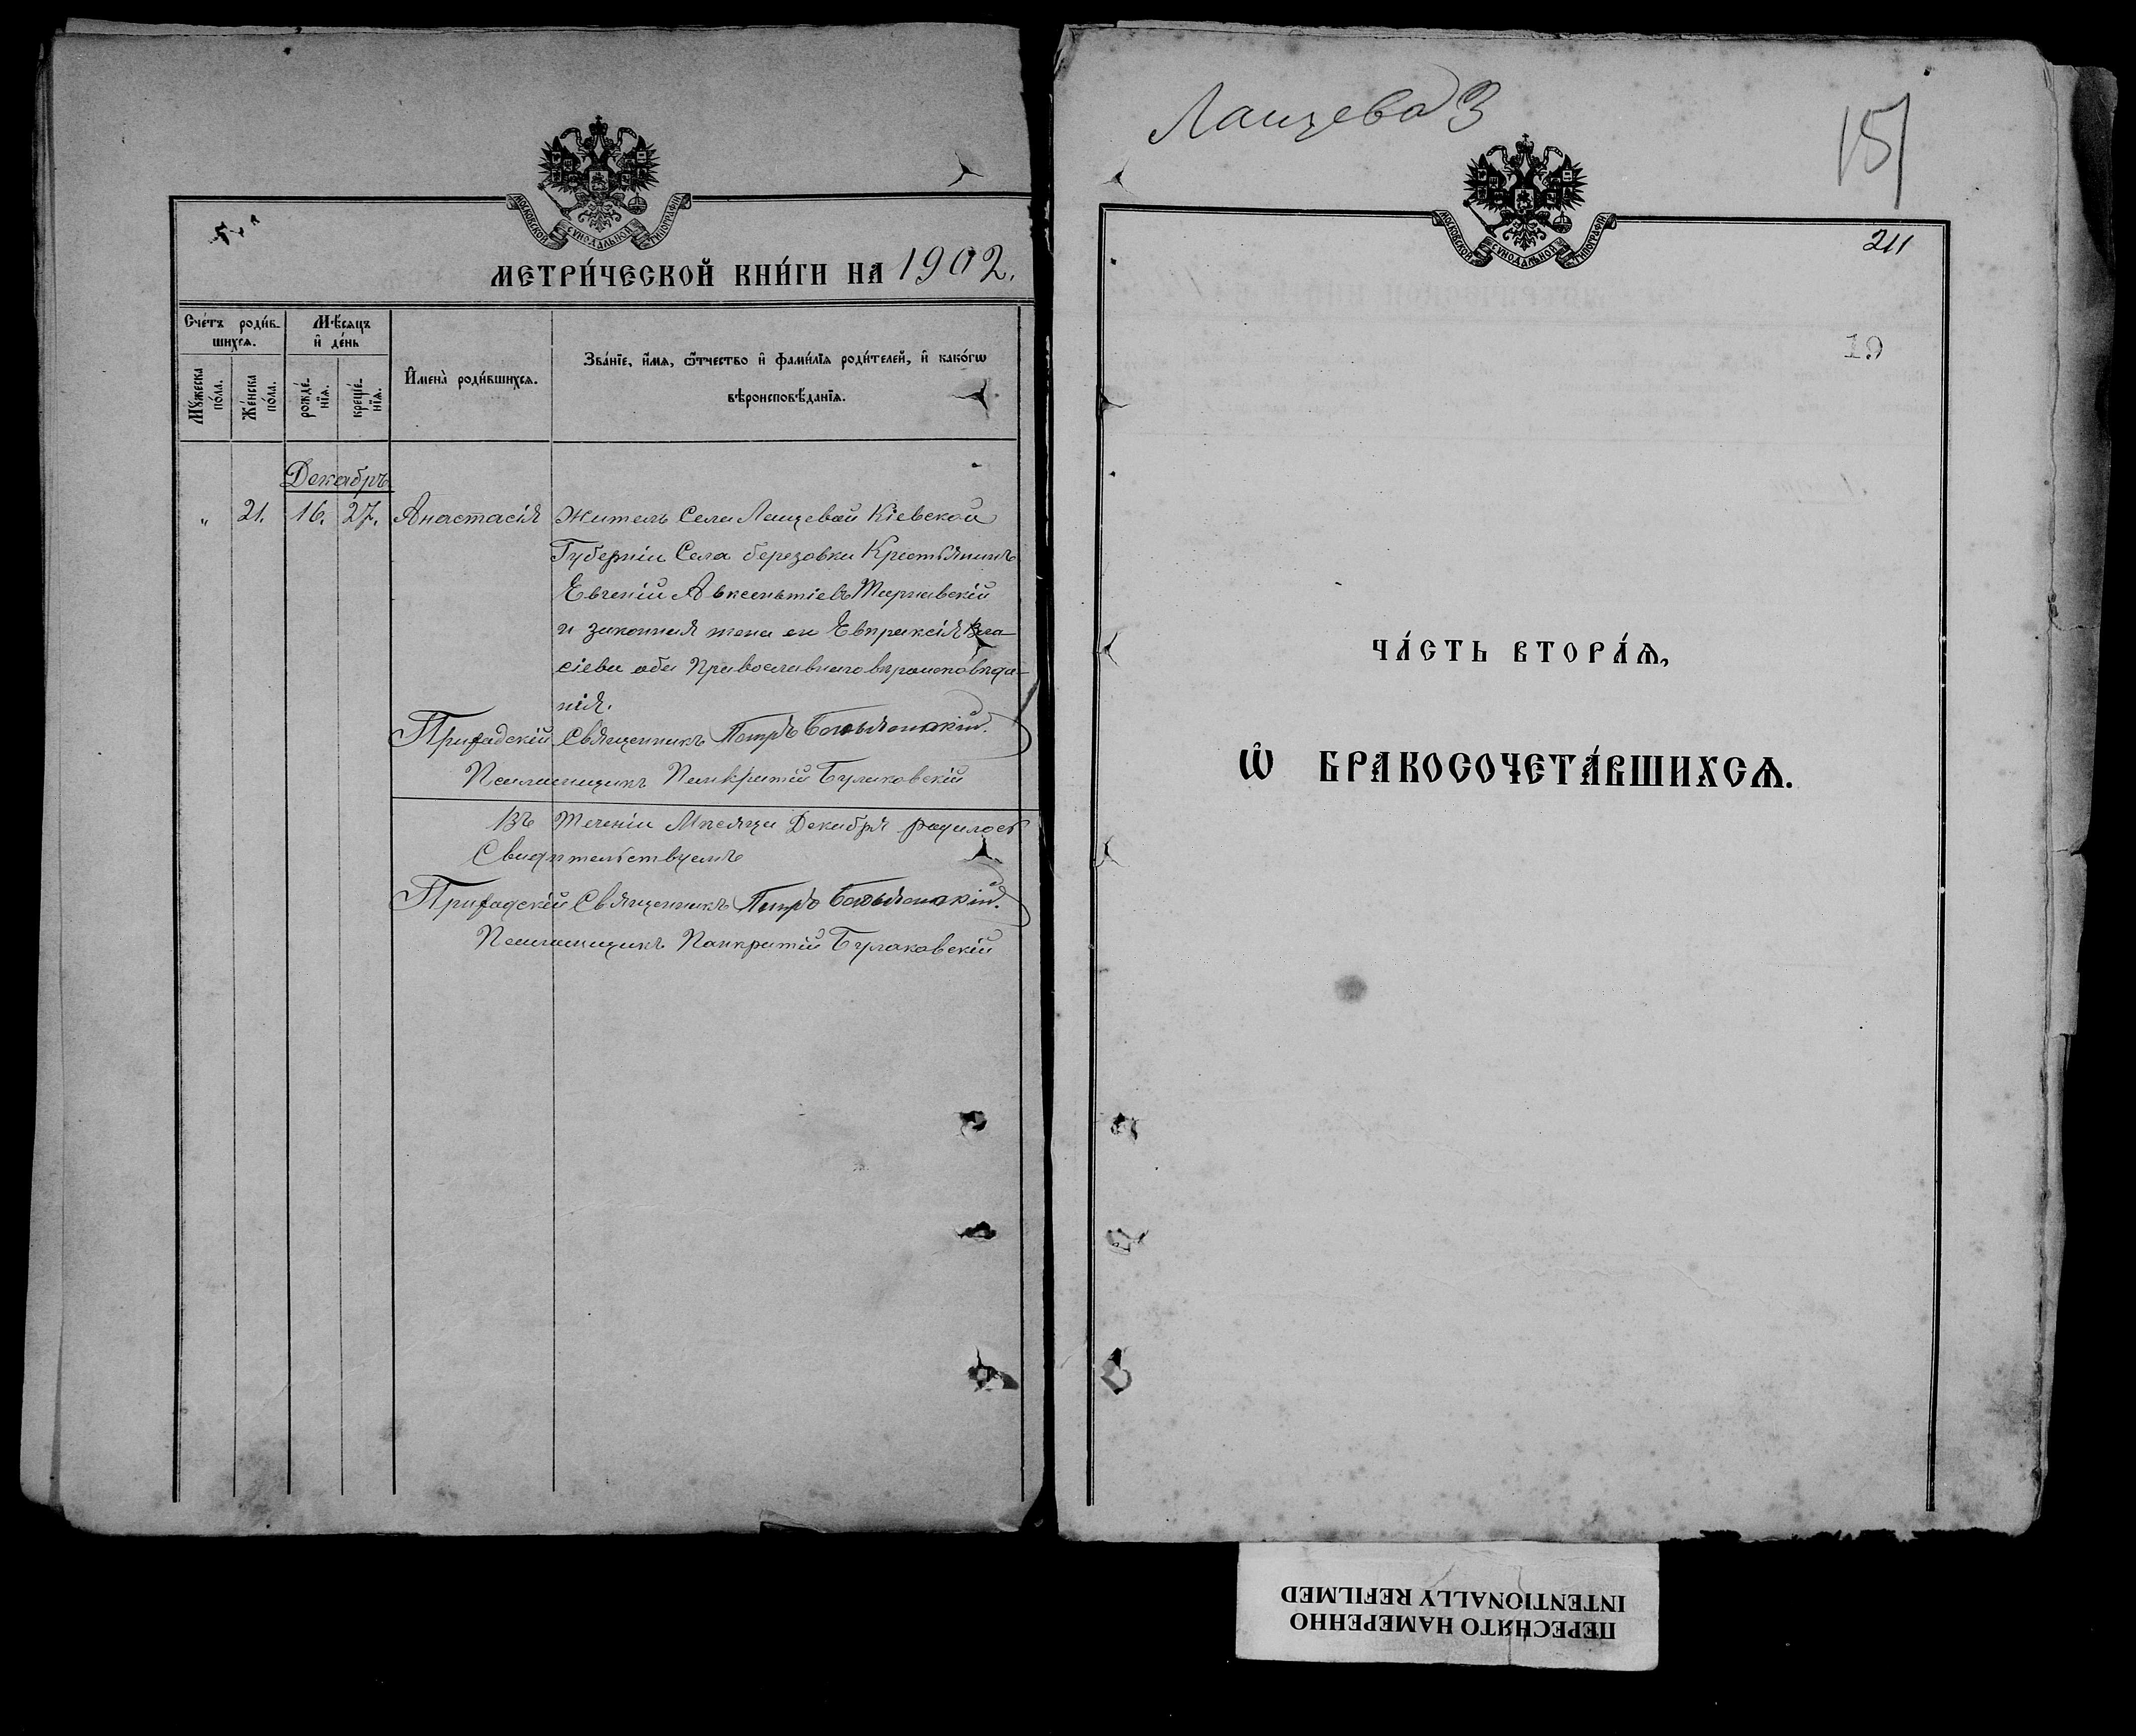 МОСКОВСКОЙ СѴНОДАЛЬНОЙ ТИПОГРАФІИ
МЕТРИ́ЧЕСКОЙ КНИ́ГИ НА 1902.
Сче́тъ роди́в-
шихсѧ.
Мѣ́сѧцъ
и҆ де́нь
Мꙋ́жеска по́ла.
Же́нска по́ла.
рожде́-
нїѧ.
креще́-
нїѧ.
И҆мена̀ роди́вшихсѧ.
Зва́нїе, и҆́мѧ, ѻ҆́тчество и҆ фами́лїѧ роди́телей, и҆ како́гѡ
вѣроисповѣ́данїѧ.
Декабрь
„ 21. 16. 27. Анастасія Житель Села Лащевой Кіевской
Губерніи Села березовки Крестьянинъ
Евгеній Авксентіевъ Тарнавскій
и законная жена ея Евпраксія Вла-
сіева оба Православнаго вѣроисповѣда-
нія.
Приходскій Священникъ Петръ
Псаломщикъ Панкратій Булаковскій
Въ теченіи Мѣсяца Декабря родилось
Свидѣтельствуемъ
Приходскій Священникъ Петръ
Псаломщикъ Панкратій Булаковскій
Лащева 3
151
МОСКОВСКОЙ СѴНОДАЛЬНОЙ ТИПОГРАФІИ
211
19
ЧА́СТЬ ВТОРА́Ѧ,
Ѽ БРАКОСОЧЕТА́ВШИХСѦ.
ПЕРЕСНЯТО НАМЕРЕННО
INTENTIONALLY REFILMED